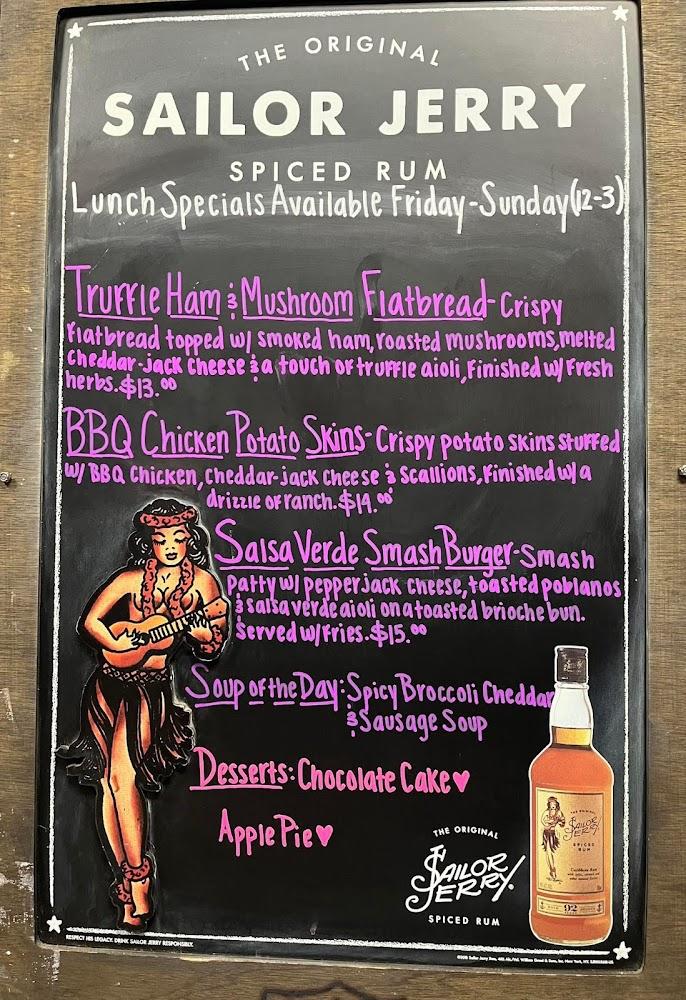 THE ORIGINAL
SAILOR JERRY
SPICED RUM
Lunch Specials Available Friday-Sunday (12-3)
Truffle Ham & Mushroom Flatbread- Crispy
flatbread topped w/ smoked ham, roasted mushrooms, melted
cheddar-jack cheese & a touch of truffle aioli, finished w/ fresh
herbs. $13.00
BBQ Chicken Potato Skins- Crispy potato skins stuffed
w/ BBQ chicken, cheddar-jack cheese & scallions, finished w/ a
drizzle of ranch. $14.00
Salsa Verde Smash Burger- Smash
patty w/ pepperjack cheese, toasted poblanos
& salsa verde aioli on a toasted brioche bun.
Served w/ fries. $15.00
Soup of the Day: Spicy Broccoli Cheddar
& Sausage Soup
Desserts: Chocolate Cake ♥
Apple Pie ♥
THE ORIGINAL
SAILOR JERRY
SPICED RUM
THE ORIGINAL
SAILOR JERRY
SPICED RUM
Caribbean Rum
92
RESPECT HIS LEGACY. DRINK SAILOR JERRY RESPONSIBLY.